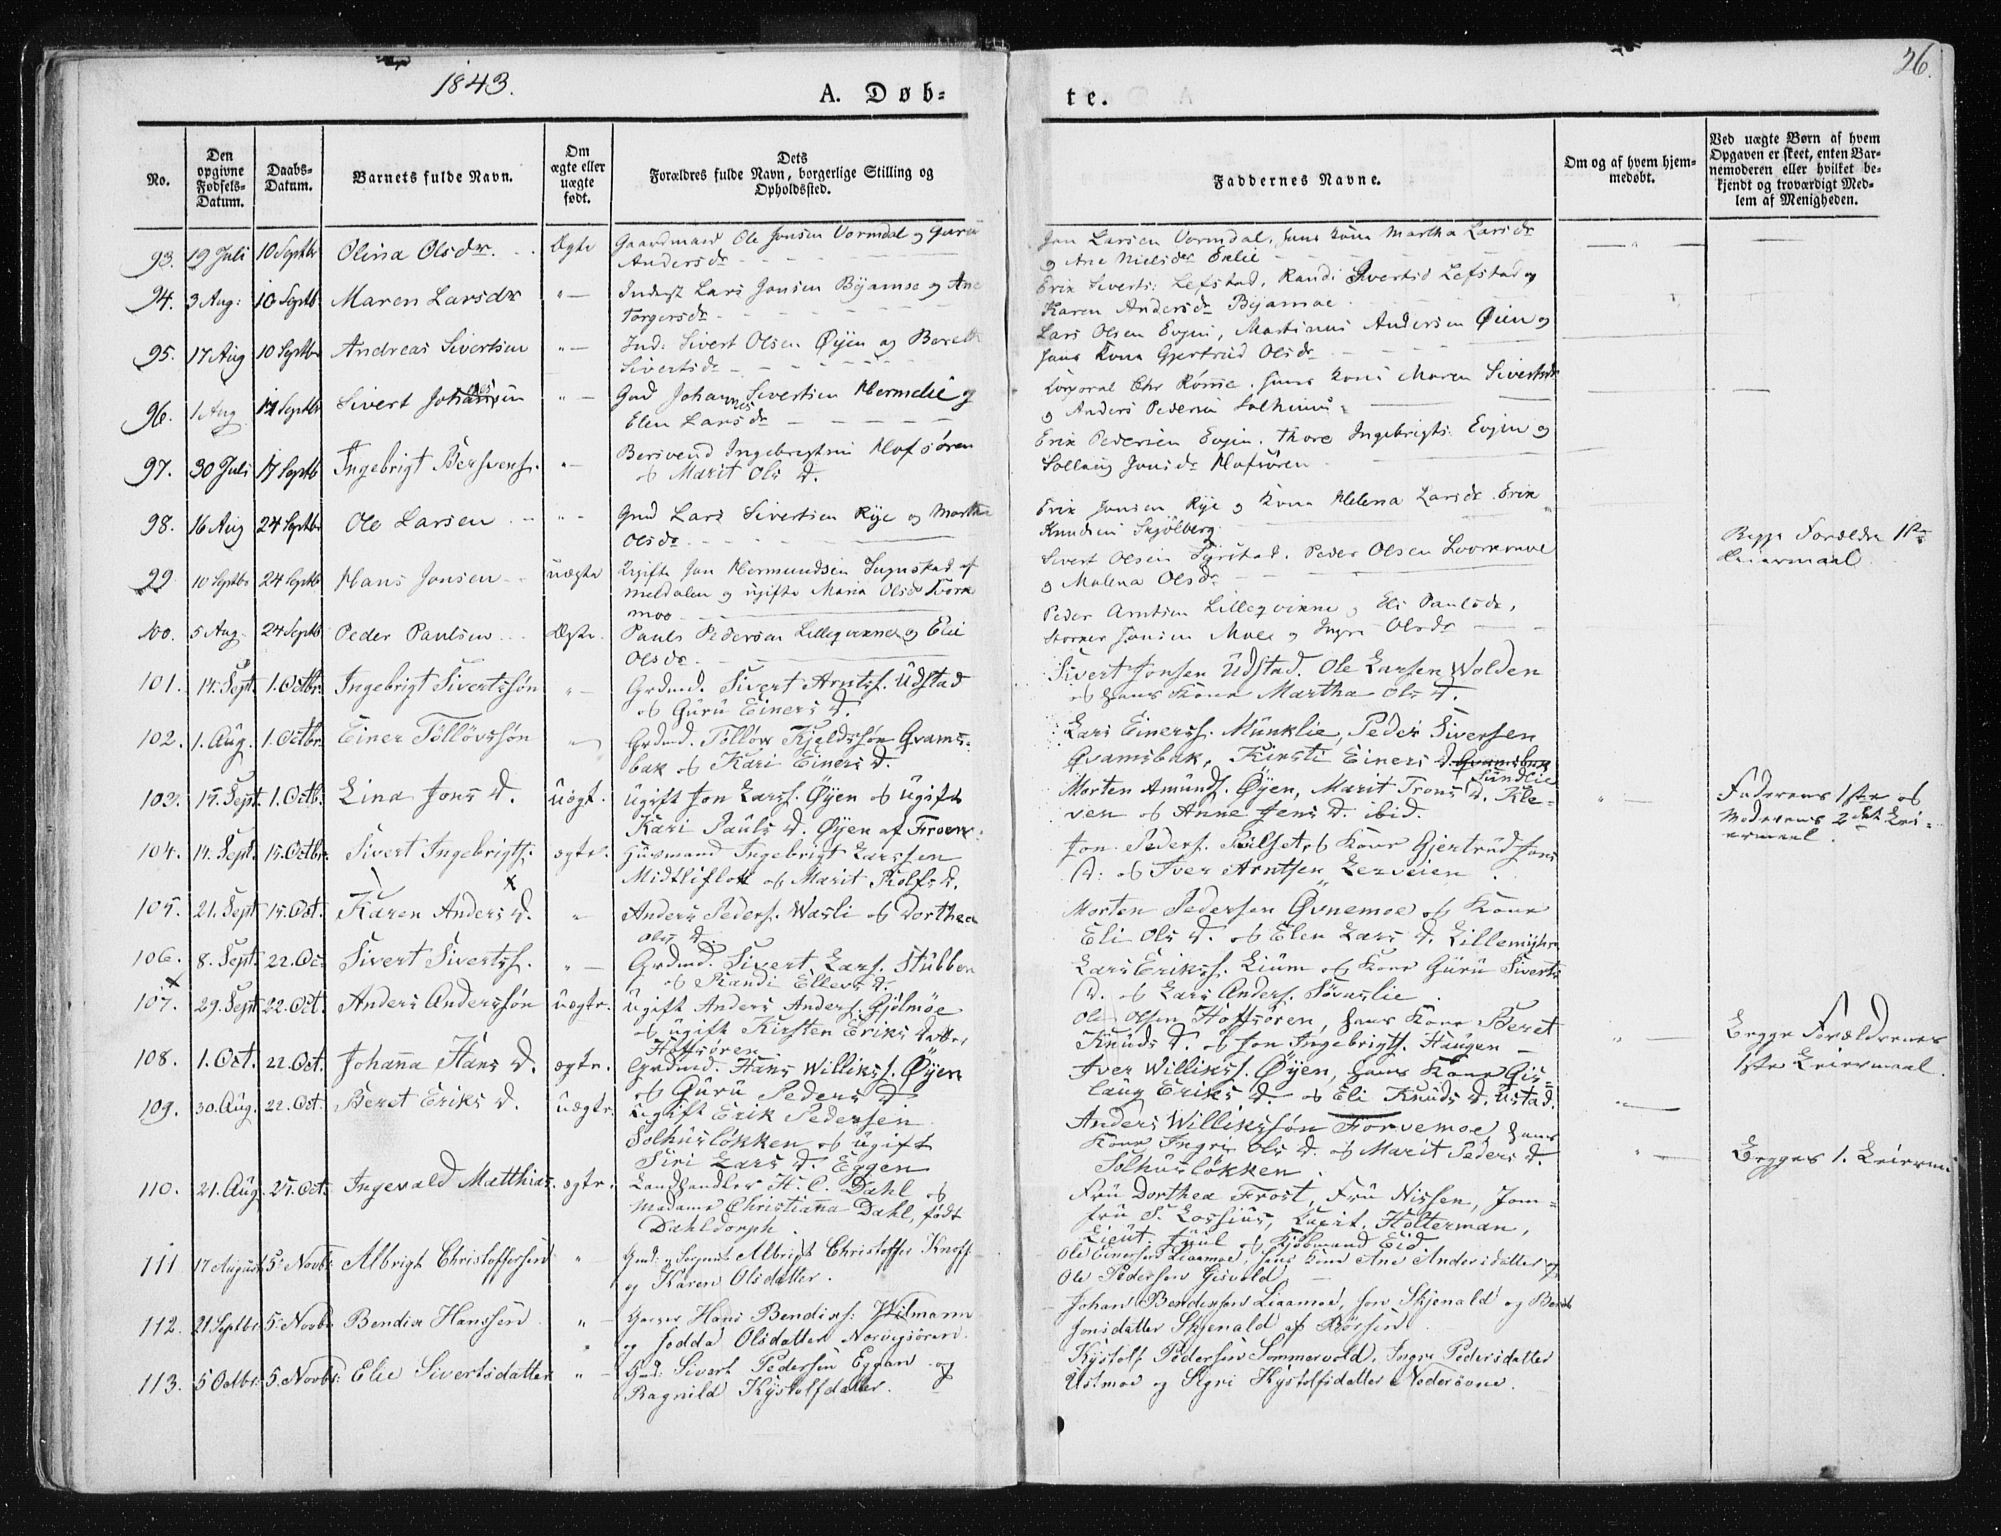 1843.
A. Døb=
te.
26.
No.
Den opgivne Fødsels-Datum.
Daabs-Datum.
Barnets fulde Navn.
Om ægte eller uægte født.
Dets Forældres fulde Navn, borgerlige Stilling og Opholdssted.
Faddernes Navne.
Om og af hvem hjemmedøbt.
Ved uægte Børn af hvem Opgaven er skeet, enten Barnemoderen eller hvilket bekjendt og troværdigt Medlem af Menigheden.
93. 19 Juli 10 Septbr Olina Olsdr. Ægte Gaardmand Ole Jonsen Vormdal og Guru
Andersdr
Jon Larsen Vormdal, hans kone Martha Larsdr
og Ane Nielsdr Eklie
94. 3 Aug: 10 Septb. Maren Larsdr "— Inderst Lars Jonsen Byamoe og Ane
Torgersdr
Erik Siverts: Lefstad, Randi Sivertsd Lefstad og
Karen Andersdr Byamoe
95. 17 Aug 10 Septbr Andreas Sivertsen "— Ind: Sivert Olsen Øyen og Berett
Sivertsdr
Lars Olsen Evjen, Martinus Andersen Øien og
hans Kone Gjertrud Olsdr
96. 1 Aug 17 Septbr Sivert Johannesen "— Gmd Johannes Sivertsen Hermelie og
Elen Larsdr
Korporal Chr Rømme, hans kone Maren Sivertsdr
og Anders Pedersen Solhuus
97. 30 Juli 17 Septb Ingebrigt Bersvens. "— Bersvend Ingebrigtsen Hofsøren
& Marit Ols D.
Erik Pedersen Evjen. Thore Ingebrigts: Evjen og
Solloug Jonsdr Hofsøren
98. 16 Aug 24 Septbr Ole Larsen "— Gmd Lars Sivertsen Rye og Martha
Olsdr
Erik Jonsen Rye og Kone Helena Larsdr. Erik
Knudsen Skjølberg
99 10 Septbr 24 Septbr Hans Jonsen uægte Ugifte Jon Hermundsen Syrstad af
Meldalen og ugifte Maria Olsdr Kvork
moe
Sivert Olsen Syrstad. Peder Olsen Kvorkmoe
og Malena Olsdr
Begge Forældre 1ste
Leiermaal
100. 5 Aug. 24 Septb Peder Paulsen Ægte. Pauls Pedersen Lilleqvinne og Elie
Olsdr.
Peder Arntsen Lilleqvinne og Eli Paulsdr,
Storker Jonsen Moee og Ingri Olsdr
101. 14. Sept. 1. Octbr. Ingebrigt Sivertssøn "— Grdmd. Sivert Arntss. Udstad
& Guru Einers D.
Sivert Jonsen Udstad. Ole Larsen Wolden
& hans Kone Martha Ols D.
102. 1. Aug. 1. Octbr. Einer Tølløvssøn "— Grdmd. Tølløv Kjeldssøn Gvams-
bak & Kari Einers D.
Lars Einerss. Munklie, Peder Siversen
Gvamsbak, Kirsti Einers D. Sundlie
103. 15. Sept. 1. Octb. Lina Jons D. uægt. Ugift Jon Larss. Øyen & ugift
Kari Pauls D. Øyen af Froen.
Morten Amunds. Øyen, Marit Trons D. Kle-
ven & Anne Jens D. ibid.
"—
Faderens 1ste &
Moderens 2det Lei-
ermaal.
104. 14. Sept. 15. Octbr. Sivert Ingebrigts. ægte. Huusmand Ingebrigt Larssen
Midtliflott & Marit Rolfs D.
Jon Peders. Pulset & Kone Gjertrud Jons
D. & Iver Arntsen Lerveien.
105. 21. Sept 15. Oct. Karen Anders D. " Anders Peders. Wasli & Dorthea
Ols D.
Morten Pedersen Øvnemoe & Kone
Eli Ols D. & Elen Lars D. Lillemyhr
106. 8. Sept. 22. Oc. Sivert Sivertss. "— Grdmd. Sivert Lars. Stubben
& Randi Ellevs D.
Lars Erikss. Lium & Kone Guru Siverts
D. & Lars Anders. Føvaslie.
107. 29. Sept 22. Oct. Anders Anderssøn uægte. Ugift Anders Anders. Gjølmoe
& ugift Kirsten Eriks Datter
Hoffsøren
Ole Olsen Hoffsøren, hans Kone Beret
Knuds D. & Jon Ingebrigts. Haugen
"—
Begge Forældrenes
1ste Leiermaal.
108. 1. Oct. 22. Oct. Johanna Hans D. ægte. Grdmd. Hans Williks. Øyen
& Guru Peders D.
Iver Williks. Øyen, hans Kone Gis-
laug Eriks D. & Eli Knuds D. Ustad.
109. 30. Aug. 22. Oct. Beret Eriks D. uægte. Ugift Erik Pedersen
Solhusløkken & ugift
Siri Lars D. Eggen
Anders Willikssøn Forvemoe, hans
Kone Ingri Ols D. & Marit Peders D.
Solhusløkken.
"—
Begges 1. Leierm.
110. 21. Aug. 25. Oct. Ingevald Matthias. ægte. Landhandler H. C. Dahl &
Madame Christianna Dahl, født
Dahldorph.
Fru Dorthea Frost, Fru Nissen, Jom-
fru S. Lossius, Lieut. Holterman,
Lieut. Juul & Kjøbmand Eid
111 17 August 5. Novbr. Albrigt Christoffersen " Gmd: og Sergeant Albrigt Christoffer Knoff
og Karen Olsdatter.
Ole Einersen Liaamoe, hans kone Ane Andersdatter og
Ole Pedersen Gisvold
112. 21 Septbr 5. Novbr Bendix Hanssen " Garver Hans Bendixs: Wilmann
og Jodda Olsdatter Norvigsøren.
Johan Bendixsen Liaamoe, Jon Skjenald og Berit
Jonsdatter Skjenald af Børsen.
113. 5 Octbr. 5. Novbr: Elie Sivertsdatter " Gmd: Sivert Pedersen Eggan og
Ragnild Kystolfdatter.
Kystolf Pedersen Sommervold, Ingri Pedersdatter
Ustmoe og Sigri Kystolfsdatter Nedreøvne.